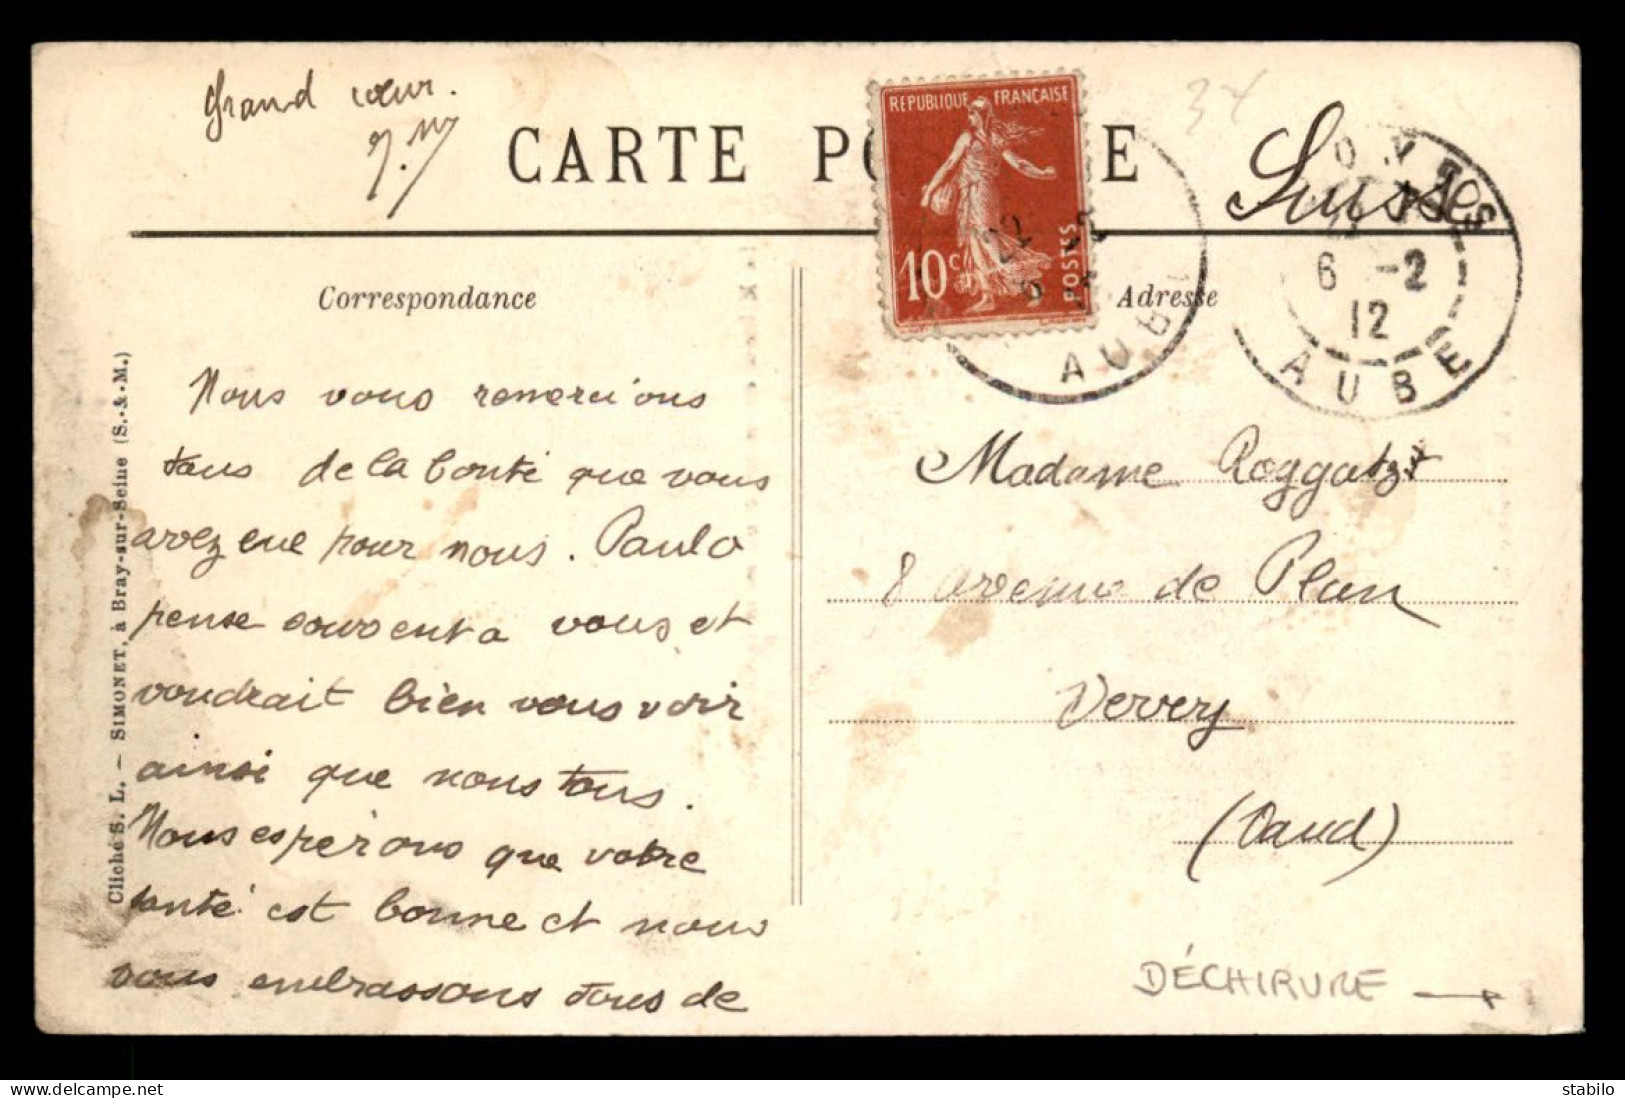 grand cœur.
J. M
CARTE PO E
REPUBLIQUE FRANÇAISE
10c
POSTES
Suisse
6 -2
12
AUBE
AUB
Correspondance
Adresse
Nous vous remercions
tous de la bonté que vous
avez eue pour nous. Paulo
pense souvent a vous et
voudrait bien vous voir
ainsi que nous tous.
Nous espérons que votre
santé est bonne et nous
vous embrassons tous de
Madame Roggatz
8 avenue de Plan
Vevey
(Vaud)
DÉCHIRURE →
Cliché S. L. — SIMONET, à Bray-sur-Seine (S.-&-M.)
delcampe.net
stabilo